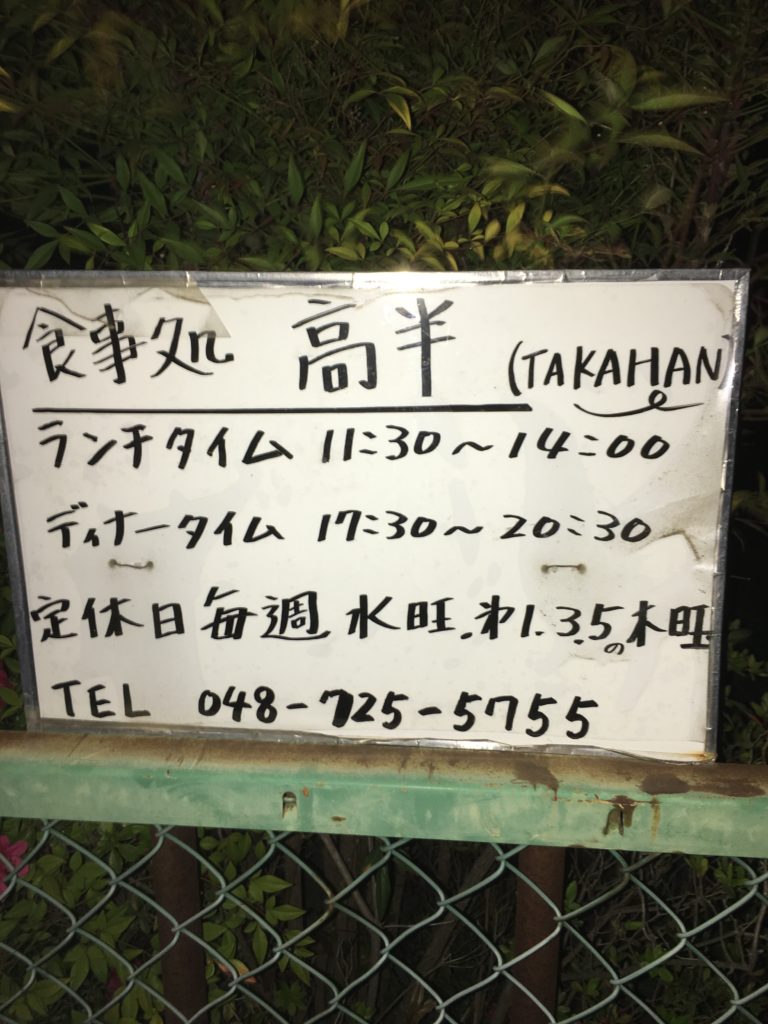 食事処 高半 (TAKAHAN)
ランチタイム 11:30～14:00
ディナータイム 17:30～20:30
定休日 毎週 水旺.第1.3.5の木旺
TEL 048-725-5755